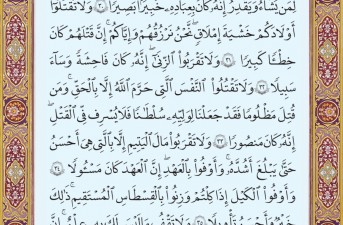 لِمَن يَشَآءُ وَيَقْدِرُ إِنَّهُۥ كَانَ بِعِبَادِهِۦ خَبِيرًۢا بَصِيرًا ٣٠ وَلَا تَقْتُلُوٓا۟
أَوْلَٰدَكُمْ خَشْيَةَ إِمْلَٰقٍ نَّحْنُ نَرْزُقُهُمْ وَإِيَّاكُمْ إِنَّ قَتْلَهُمْ كَانَ
خِطْـًٔا كَبِيرًا ٣١ وَلَا تَقْرَبُوا۟ ٱلزِّنَىٰٓ إِنَّهُۥ كَانَ فَٰحِشَةً وَسَآءَ
سَبِيلًا ٣٢ وَلَا تَقْتُلُوا۟ ٱلنَّفْسَ ٱلَّتِى حَرَّمَ ٱللَّهُ إِلَّا بِٱلْحَقِّ وَمَن
قُتِلَ مَظْلُومًا فَقَدْ جَعَلْنَا لِوَلِيِّهِۦ سُلْطَٰنًا فَلَا يُسْرِف فِّى ٱلْقَتْلِ
إِنَّهُۥ كَانَ مَنصُورًا ٣٣ وَلَا تَقْرَبُوا۟ مَالَ ٱلْيَتِيمِ إِلَّا بِٱلَّتِى هِىَ أَحْسَنُ
حَتَّىٰ يَبْلُغَ أَشُدَّهُۥ وَأَوْفُوا۟ بِٱلْعَهْدِ إِنَّ ٱلْعَهْدَ كَانَ مَسْـُٔولًا ٣٤
وَأَوْفُوا۟ ٱلْكَيْلَ إِذَا كِلْتُمْ وَزِنُوا۟ بِٱلْقِسْطَاسِ ٱلْمُسْتَقِيمِ ذَٰلِكَ
خَيْرٌ وَأَحْسَنُ تَأْوِيلًا ٣٥ وَلَا تَقْفُ مَا لَيْسَ لَكَ بِهِۦ عِلْمٌ إِنَّ